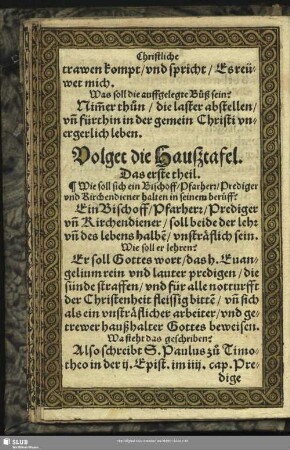 Christliche
trawen kompt/vnd spricht/Es reü-
wet mich.
Was soll die auffgelegte Büß sein?
Nim̃er thůn/die laster abstellen/
vñ fürthin in der gemein Christi vn-
ergerlich leben.
Volget die Haußtafel.
Das erste theil.
¶ Wie soll sich ein Bischoff/Pfarherr/Prediger
vnd Kirchendiener halten in seinem berüff?
Ein Bischoff/Pfarherr/Prediger
vñ Kirchendiener/soll beide der lehr
vñ des lebens halbē/vnsträflich sein.
Wie soll er lehren?
Er soll Gottes wort/das h. Euan-
gelium rein vnd lauter predigen/die
sünde straffen/vnd für alle notturfft
der Christenheit fleissig bittē/vñ sich
als ein vnsträflicher arbeiter/vnd ge-
trewer haußhalter Gottes beweisen.
Wa steht das geschriben?
Also schreibt S. Paulus zů Timo-
theo in der ij. Epist. im iiij. cap. Pre-
dige
SLUB